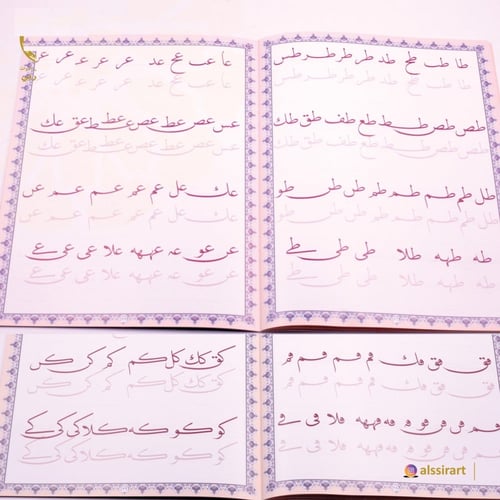 طا طب طح طد طر طر طر طس
طص طص طط طع طف طق طك
طل طم طم طم طن طن طو
طه طهه طلا طی طی طے
عا عب عح عد عر عر عر عر
عس عص عط عص عط عق عك
عك عل عم عم عم عم عن
عن عو عه عهه علا عی عی عے
فق فق فك فم فم فم فم
فو فه فهه فلا فی فے
كق كك كل كم كم
كو كو كه كلا كی كی كے
alssirart